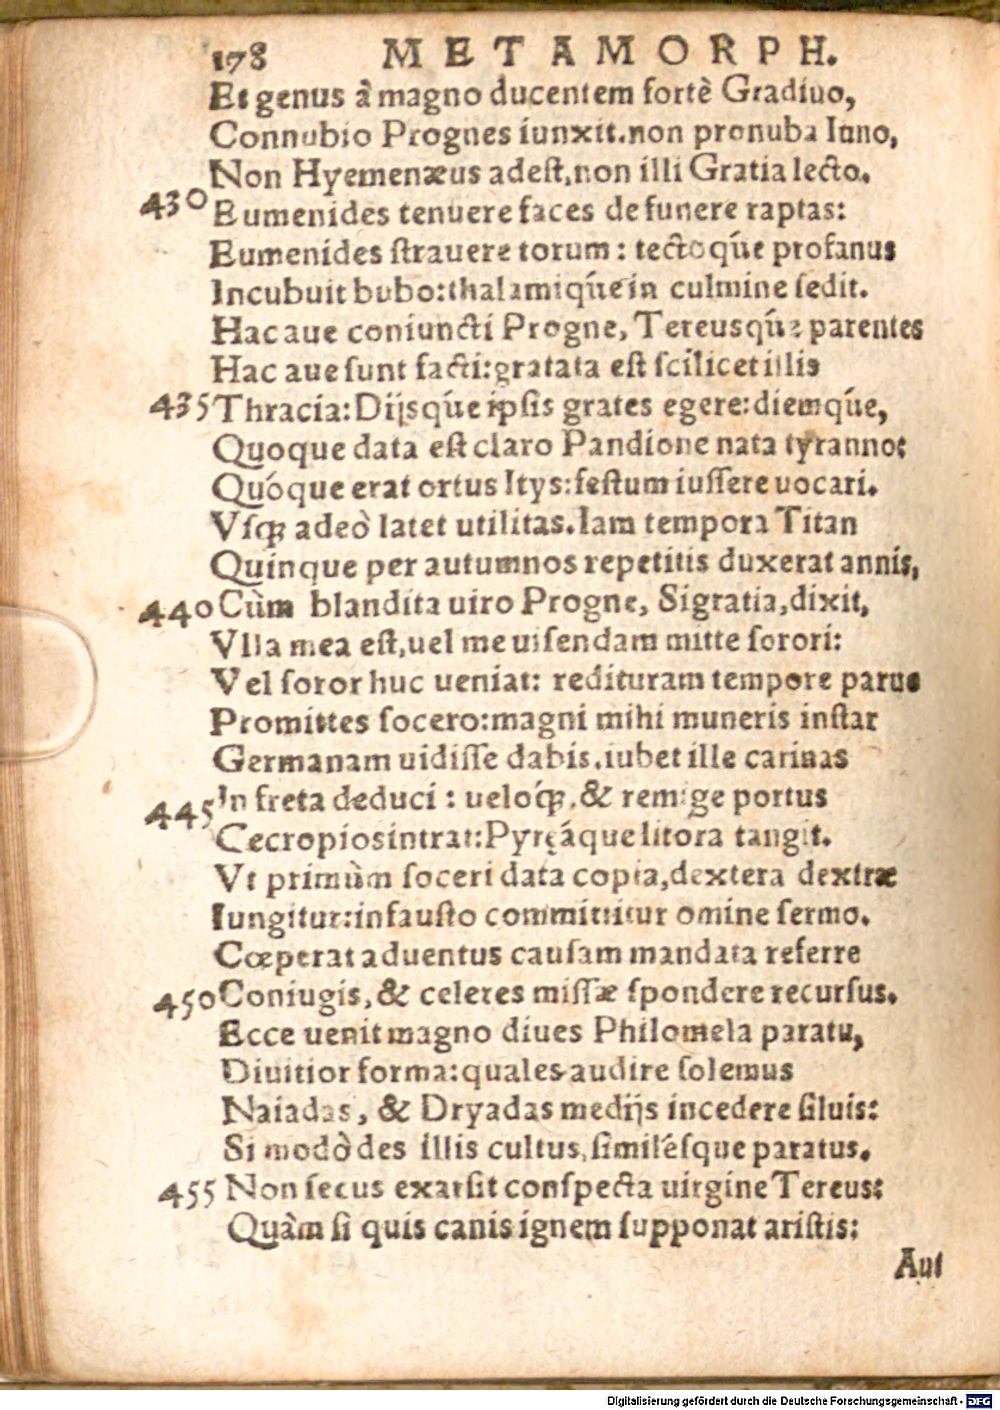 178 METAMORPH.
Et genus à magno ducentem fortè Gradiuo,
Connubio Prognes iunxit.non pronuba Iuno,
Non Hyemenæus adeſt,non illi Gratia lecto.
430 Eumenides tenuere faces de funere raptas:
Eumenides ſtrauere torum: tectoq́ue profanus
Incubuit bubo:thalamiq́ue in culmine ſedit.
Hac aue coniuncti Progne, Tereusq́ue parentes
Hac aue ſunt facti:gratata eſt ſcilicet illis
435 Thracia:Dijsq́ue ipſis grates egere:diemq́ue,
Quoque data eſt claro Pandione nata tyranno:
Quóque erat ortus Itys:feſtum iuſſere uocari.
Vſqꝫ adeò latet utilitas.Iam tempora Titan
Quinque per autumnos repetitis duxerat annis,
440 Cùm blandita uiro Progne, Si gratia,dixit,
Vlla mea eſt,uel me uiſendam mitte ſorori:
Vel ſoror huc ueniat: redituram tempore paruo
Promittes ſocero:magni mihi muneris inſtar
Germanam uidiſſe dabis.iubet ille carinas
445 In freta deduci: ueloq́ꝫ, & remige portus
Cecropios intrat:Pyręáque litora tangit.
Vt primùm ſoceri data copia,dextera dextræ
Iungitur:infauſto committitur omine ſermo.
Cœperat aduentus cauſam mandata referre
450 Coniugis, & celeres miſſæ ſpondere recurſus.
Ecce uenit magno diues Philomela paratu,
Diuitior forma:quales audire ſolemus
Naiadas, & Dryadas medijs incedere ſiluis:
Si modò des illis cultus,ſimiléſque paratus.
455 Non ſecus exarſit conſpecta uirgine Tereus:
Quàm ſi quis canis ignem ſupponat ariſtis:
Aut
Digitalisierung gefördert durch die Deutsche Forschungsgemeinschaft - DFG